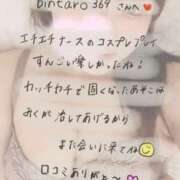 bintaro369 さんへ❤
エチエチナースのコスプレプレイ
すんごい楽しかったね!
カッチカチで固くなったあそこは
おくが治してあげるから
また会いに来てね😊
口コミありがと〜♡